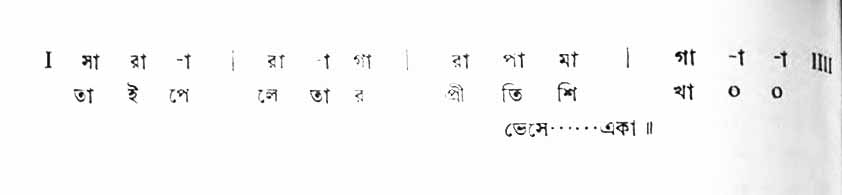 I সা রা -া | রা -া গা | রা পা মা | গা -া -া IIII
তা ই পে লে তা র প্রী তি শি খা ০ ০
ভেসে······একা ॥